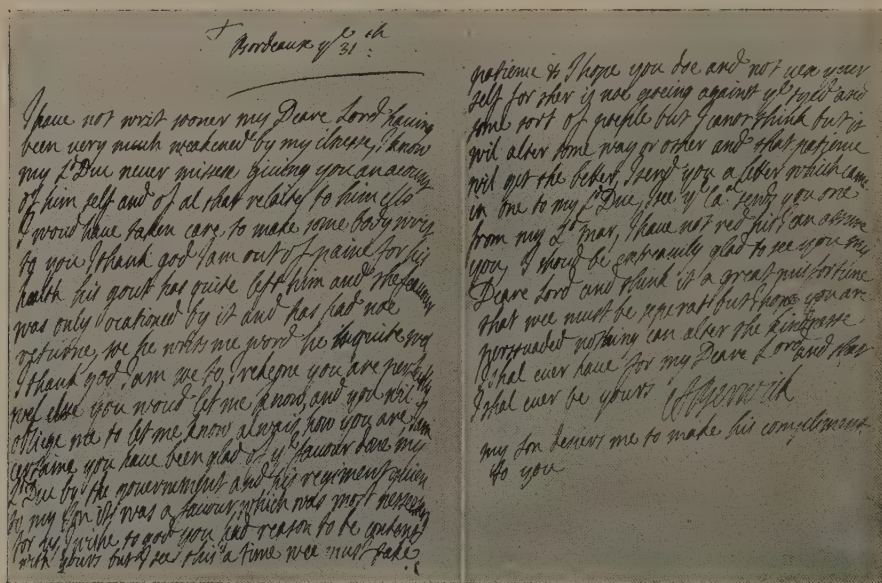 Bordeaux yᵉ 31ᵗʰ
I have not writ sooner my Deare Lord having
been very much weakened by my ilnesse, I know
my Lᵈ Duc never misses giving you an account
of him self and of al that relaites to him ells
I woud have taken care to make some body writ
to you I thank god I am out of paine for his
health his gout has quite left him and the feaver
was only ocationed by it and has had noe
returne, he writs me word he is quite wel
I thank god I am we to, I redgne you are perfectly
wel else you woud let me know, and you wil
oblige me to let me know always how you are I am
certaine you have been glad of yᵉ favour done my
Lᵈ Duc by the governmment and his regiment given
to my son it was a favour which was most nessesary
for us, I wishe to god you had reason to be contented
with yours but I see this a time wee must take
patience as I hope you doe and not vex your
self for ther is noe goeing against yᵉ tyed and
some sort of poeple but I canot think but it
wil alter some way or other and that patience
wil get the better, I send you a letter which came
in one to my Lᵈ Duc, see yᵉ Caᵈ sends you one
from my Lᵈ mar, I have not red his I can assure
you, I shoud be extreamly glad to see you my
Deare Lord and think it a great misfortune
that wee must be seperat but I hope you are
persuaded nothing can alter the kindnesse
I shal ever have for my Deare Lord and that
I shal ever be yours ABerwick
my son desiers me to make his compliments
to you